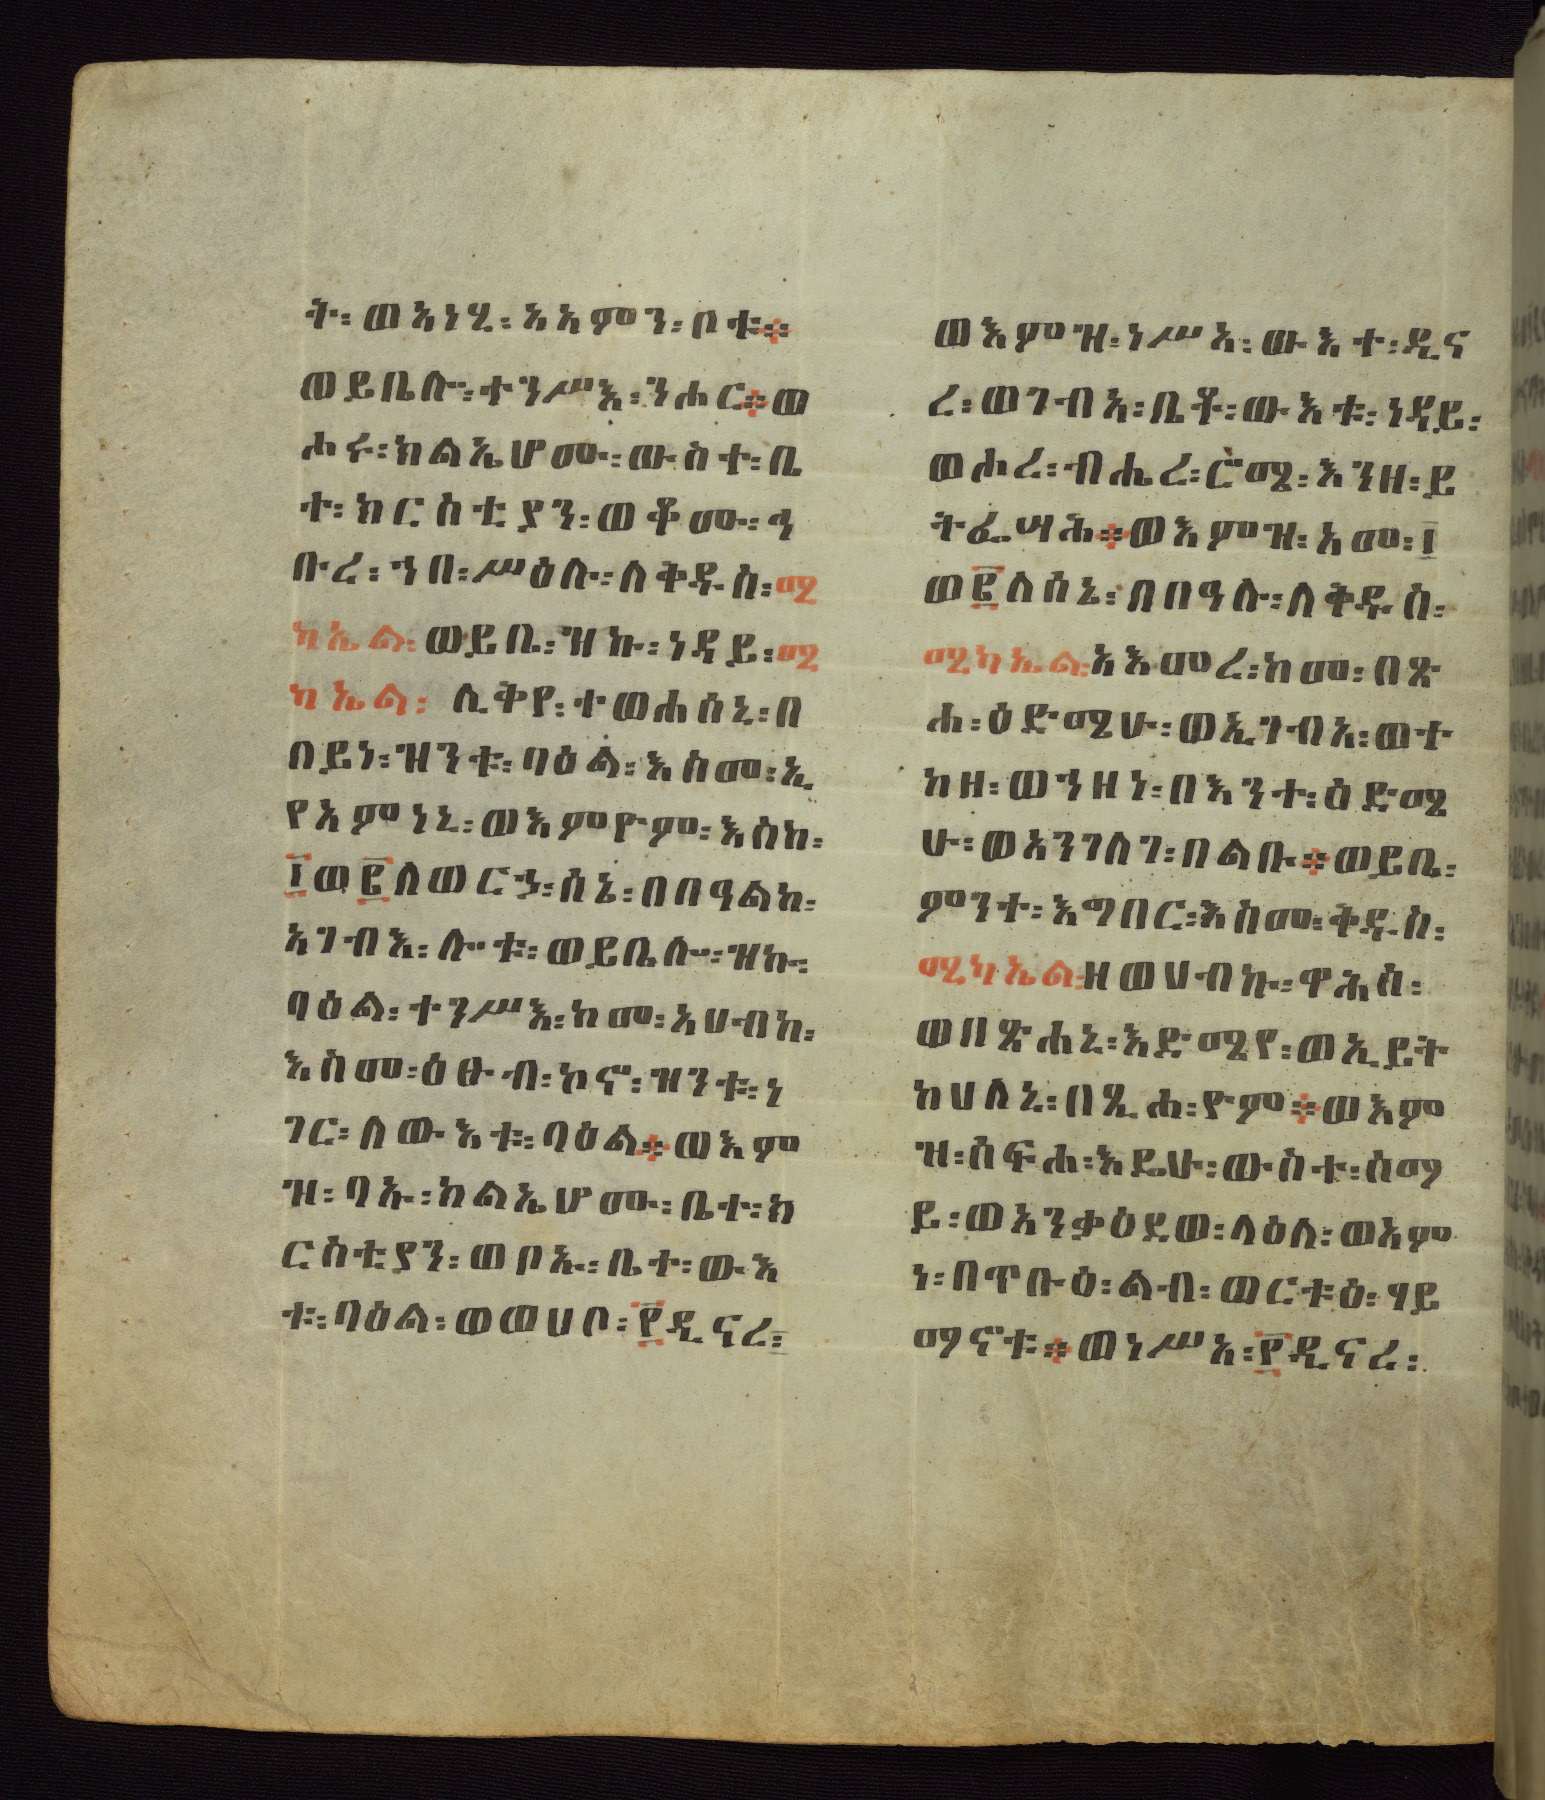 ት፡ ወአነሂ፡ አአምን፡ ቦቱ፨
ወይቤሎ፡ ተንሥእ፡ ንሐር፨ ወ
ሐሩ፡ ክልኤሆሙ፡ ውስተ፡ ቤ
ተ፡ ክርስቲያን፡ ወቆሙ፡ ኀ
ቡረ፡ ኀበ፡ ሥዕሉ፡ ለቅዱስ፡ ሚ
ካኤል፡ ወይቤ፡ ዝኩ፡ ነዳይ፡ ሚ
ካኤል፡ ሊቅየ፡ ተወሐሰኒ፡ በ
በይነ፡ ዝንቱ፡ ባዕል፡ እስመ፡ ኢ
የአምነኒ፡ ወእምዮም፡ እስከ፡
፲ወ፪ለወርኃ፡ ሰኔ፡ በበዓልከ፡
አገብእ፡ ሎቱ፡ ወይቤሎ፡ ዝኩ፡
ባዕል፡ ተንሥእ፡ ከመ፡ አሀብከ፡
እስመ፡ ዕፁብ፡ ኮኖ፡ ዝንቱ፡ ነ
ገር፡ ለውእቱ፡ ባዕል፨ ወእም
ዝ፡ ባኡ፡ ክልኤሆሙ፡ ቤተ፡ ክ
ርስቲያን፡ ወቦኡ፡ ቤተ፡ ውእ
ቱ፡ ባዕል፡ ወወሀቦ፡ ፻ዲናረ፡
ወእምዝ፡ ነሥአ፡ ውእተ፡ ዲና
ረ፡ ወገብአ፡ ቤቶ፡ ውእቱ፡ ነዳይ፡
ወሐረ፡ ብሔረ፡ ሮሜ፡ እንዘ፡ ይ
ትፌሣሕ፨ ወእምዝ፡ አመ፡ ፲
ወ፪ለሰኔ፡ በበዓሉ፡ ለቅዱስ፡
ሚካኤል፡ አእመረ፡ ከመ፡ በጽ
ሐ፡ ዕድሜሁ፡ ወኢገብአ፡ ወተ
ከዘ፡ ወኀዘነ፡ በእንተ፡ ዕድሜ
ሁ፡ ወአንገለገ፡ በልቡ፨ ወይቤ፡
ምንተ፡ እግበር፡ እስመ፡ ቅዱስ፡
ሚካኤል፡ ዘወሀብኩ፡ ዋሕስ፡
ወበጽሐኒ፡ እድሜየ፡ ወኢይት
ከሀለኒ፡ በጺሐ፡ ዮም፨ ወእም
ዝ፡ ሰፍሐ፡ እዴሁ፡ ውስተ፡ ሰማ
ይ፡ ወአንቃዕደወ፡ ላዕለ፡ ወአም
ነ፡ በጥቡዕ፡ ልብ፡ ወርቱዕ፡ ሃይ
ማኖቱ፨ ወነሥአ፡ ፻ዲናረ፡